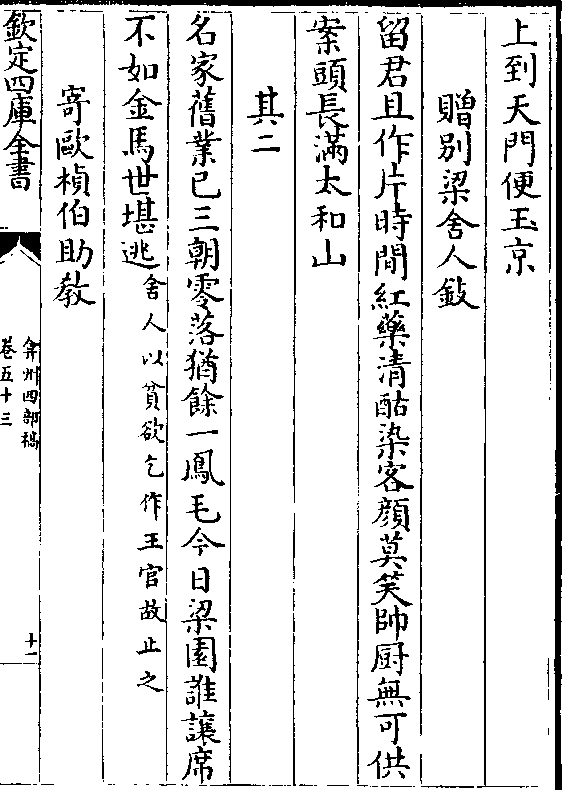 上到天門便玉京
贈別梁舍人㪇
留君且作片時間紅藥清酤染客顔莫笑帥厨無可供
案頭長滿太和山
其二
名家舊業已三朝零落猶餘一鳳毛今日梁園誰讓席
不如金馬世堪逃舍人以貧欲乞作王官故止之
寄歐楨伯助教
欽定四庫全書
弇州四部稿
卷五十三
十一